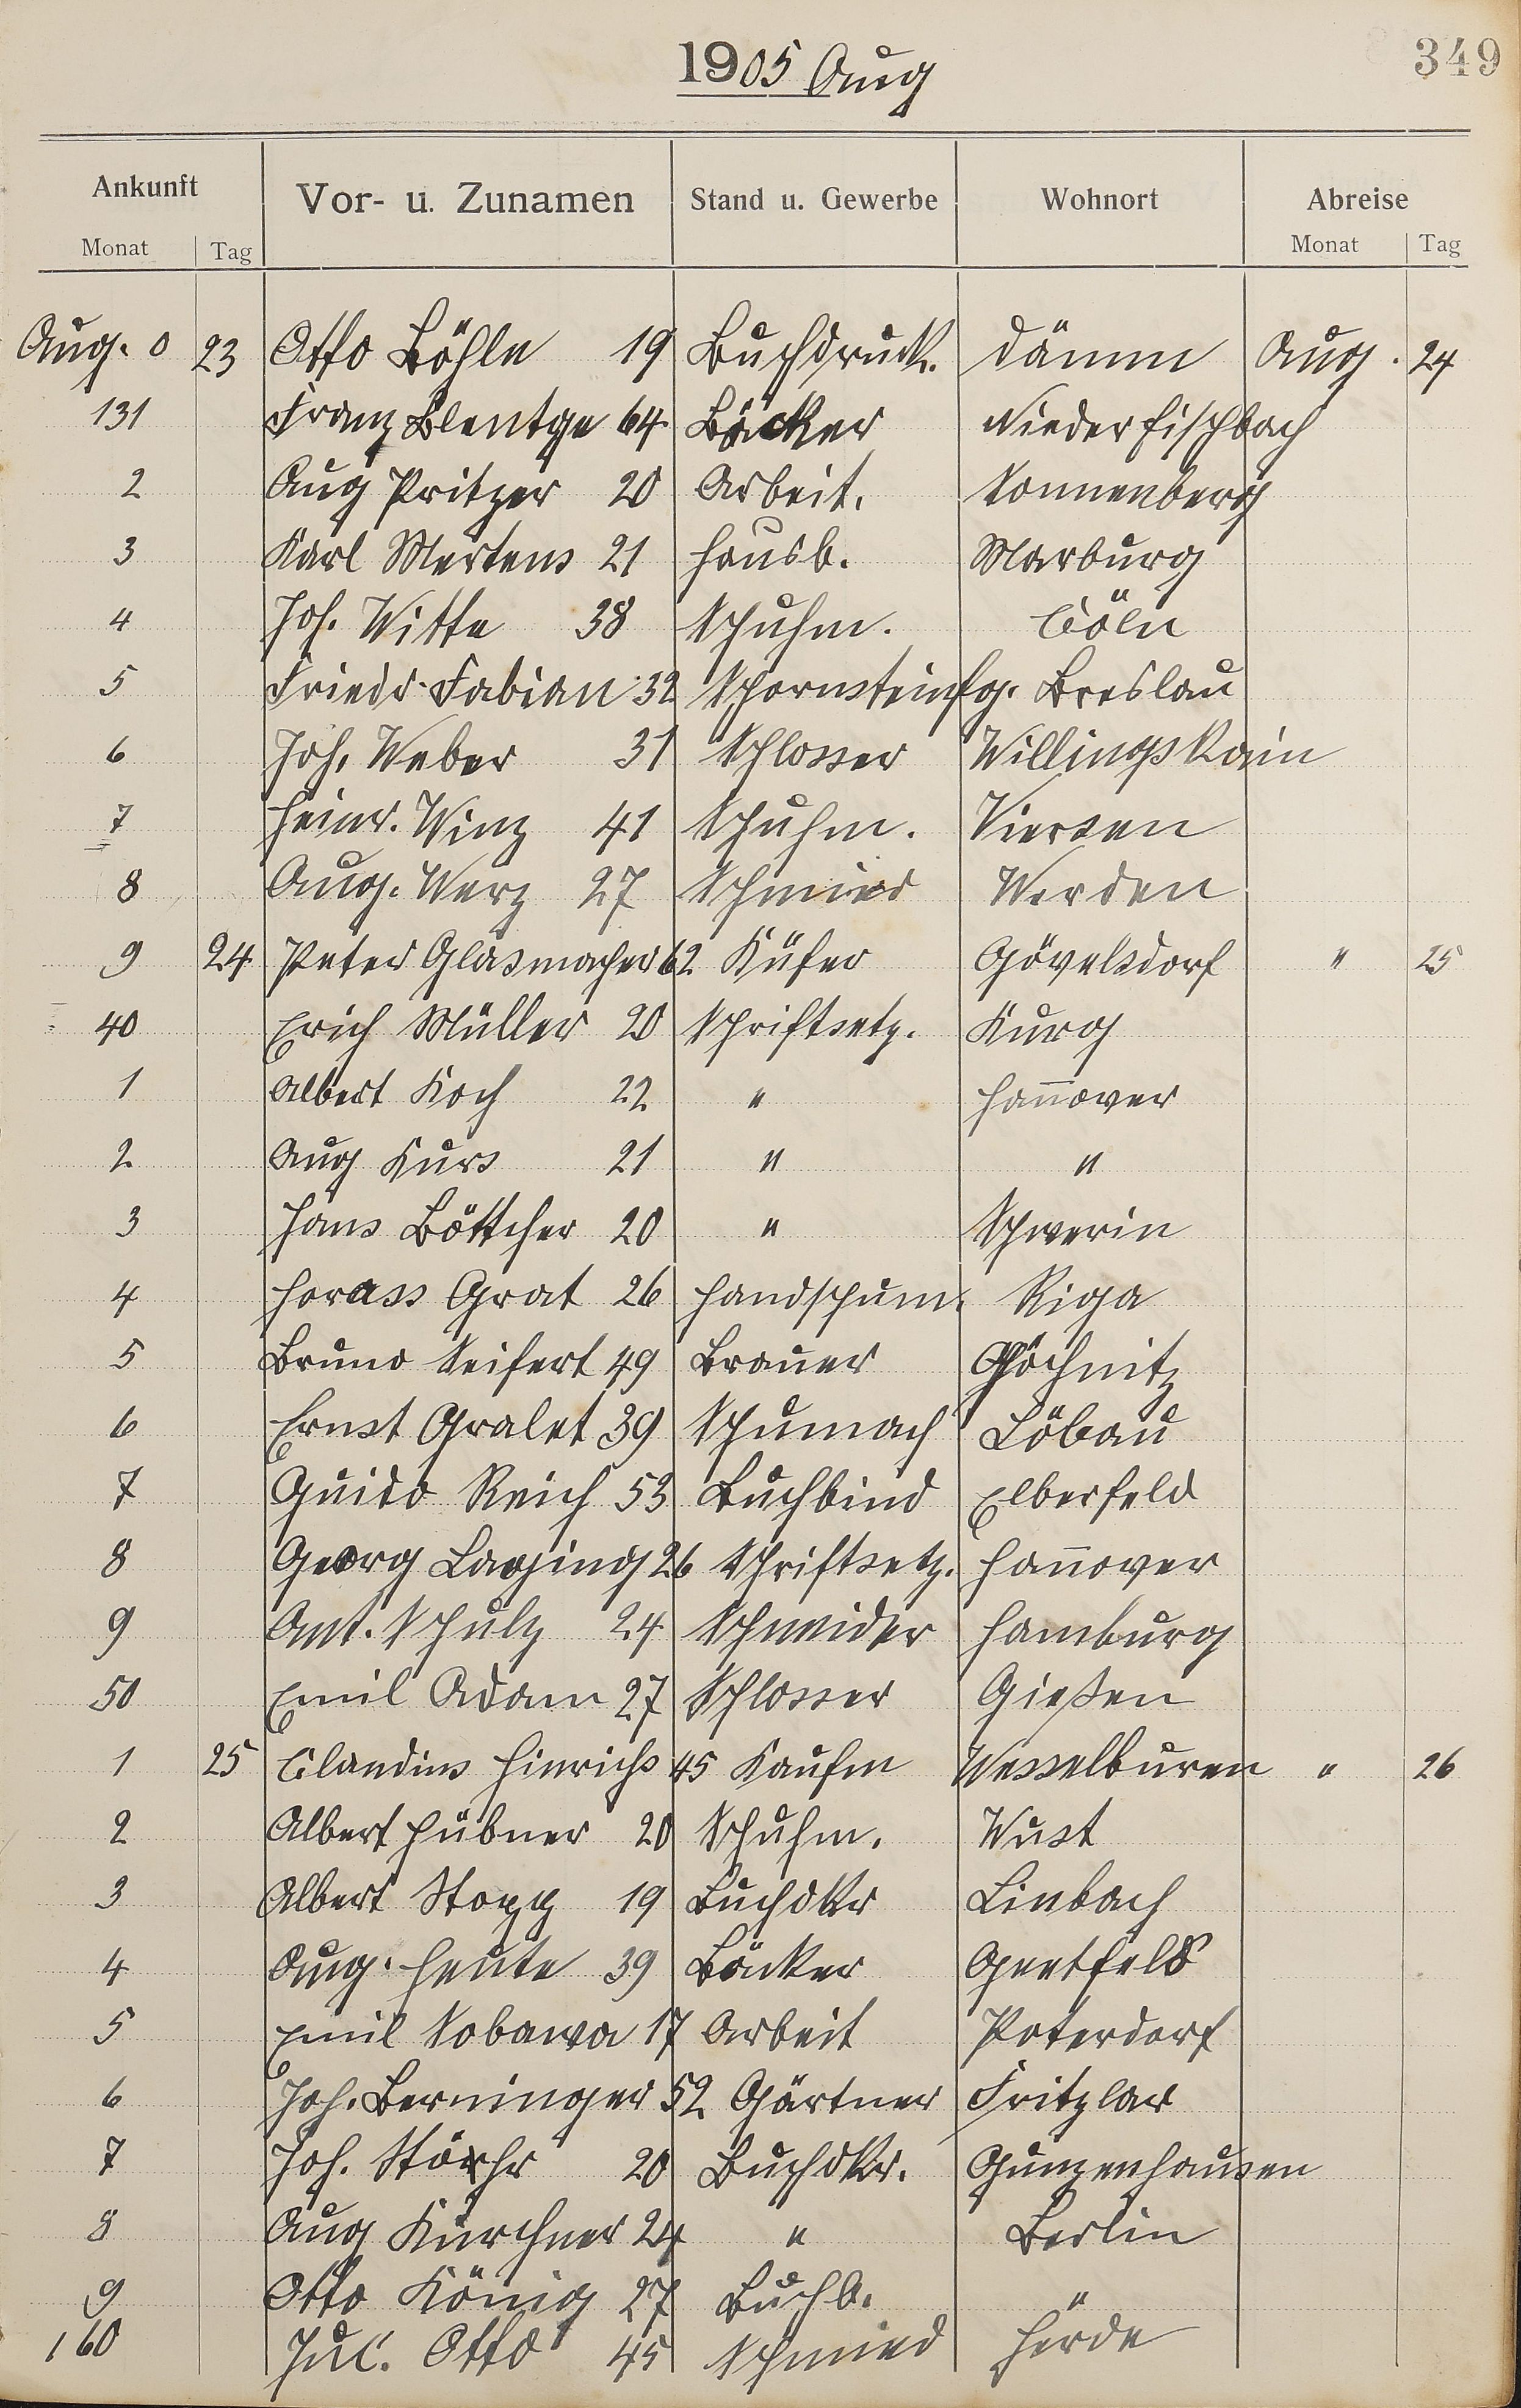 1905 Aug
349
Ankunft Vor- u. Zunamen Stand u. Gewerbe Wohnort Abreise
Monat Tag Monat Tag
Aug. 0 23 Otto Böhle 19 Buchdruck. Dämm Aug. 24
131 Franz Blentge 64 Bäcker Niederfischbach
2 Aug Pritzer 20 Arbeit. Sonnenberg
3 Karl Mertens 21 Hausb. Marburg
4 Joh. Witte 38 Schuhm. Cöln
5 Friedr. Fabian 32 Schornsteinfg. Breslau
6 Joh. Weber 31 Schlosser
7 Heinr. Winz 41 Schuhm. Viersen
8 Aug. Werz 27 Schmied Werden
9 24 Peter Glasmacher 62 Küfer Gövelsdorf " 25
40 Erich Müller 20 Schriftsetz. Kurg
1 Albert Koch 22 " Han̅over
2 Aug Kurs 21 " "
3 Hans Böttcher 20 " Schwerin
4 Horass Grat 26 Handschum. Riga
5 Bruno Seifert 49 Brauer Göchnitz
6 Ernst Gralet 39 Schumach Löbau
7 Guido Reich 53 Buchbind Elberfeld
8 Georg Laging 26 Schriftsetz. Han̅over
9 Ant. Schulz 24 Schneider Hamburg
50 Emil Adam 27 Schlosser Gießen
1 25 Clandins Hinrichs 45 Kaufm Wesselburen " 26
2 Albert Hübner 20 Schuhm. Wust
3 Albert Stopp 19 Buchdkr Linbach
4 Aug. Heute 39 Bäcker
5 Emil Sobawa 17 Arbeit Peterdorf
6 Joh. Berninger 52 Gärtner Fritzlar
7 Joh. 20 Buchdkr. Gunzenhausen
8 Aug Kirchner 24 " Berlin
9 Otto König 27 Buchb. "
160 Jul. Otto 45 Schmied Hörde